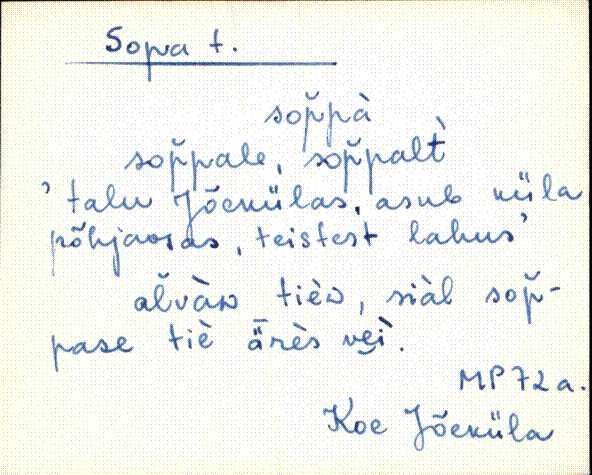 Sopa t.
sop̆pà
sop̆pale, sop̆palt̀
'talu Jõekülas, asub küla
põhjaosas, teistest lahus'
tiè, siàl sop̆-
pase tiè ä̈rès
MP 72 a.
Koe Jõeküla